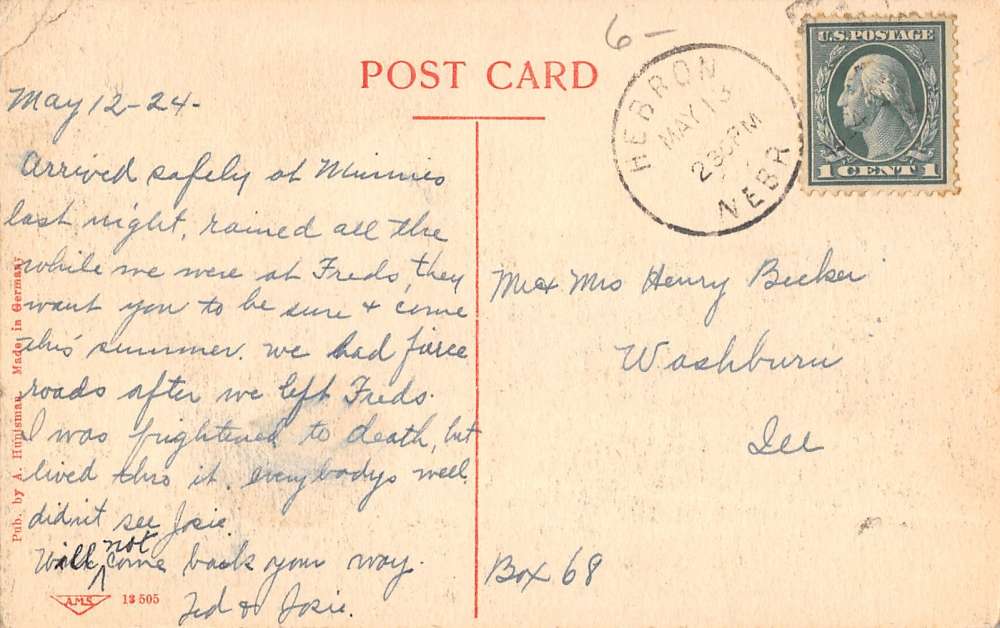 6-
POST CARD
HEBRON
MAY 13
2 30 PM
NEBR
U.S. POSTAGE
1 CENT 1
May 12-24-
Arrived safely at Minnies
last night, rained all the
while we were at Freds, they
want you to be sure & come
this summer. we had fierce
roads after we left Freds.
I was frightened to death, but
lived thro it. everybodys well.
didn't see Josie
Will not come back your way.
Ted &
Mr & Mrs Henry Becker
Washburn
Ill
Box 68
Pub. by A. Huntsman. Made in Germany
A.M.S. 13 505